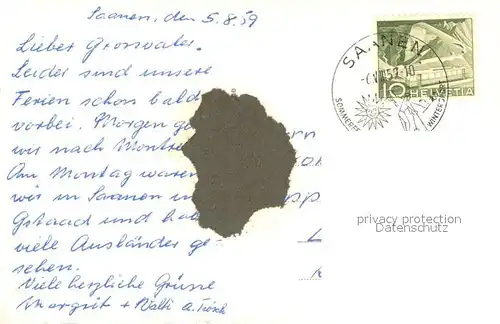 Saanen, den 5.8.59
Lieber Grossvater.
Leider sind unsere
Ferien schon bald
vorbei. Morgen ge
wir nach Montre
Am Montag waren
wir in Saanen un
Gstaad und hab
viele Ausländer ge-
sehen.
Viele herzliche Grüsse
Margrit + Walti
SAANEN
10
HELVETIA
SOMMER
WINTER
privacy protection
Datenschutz